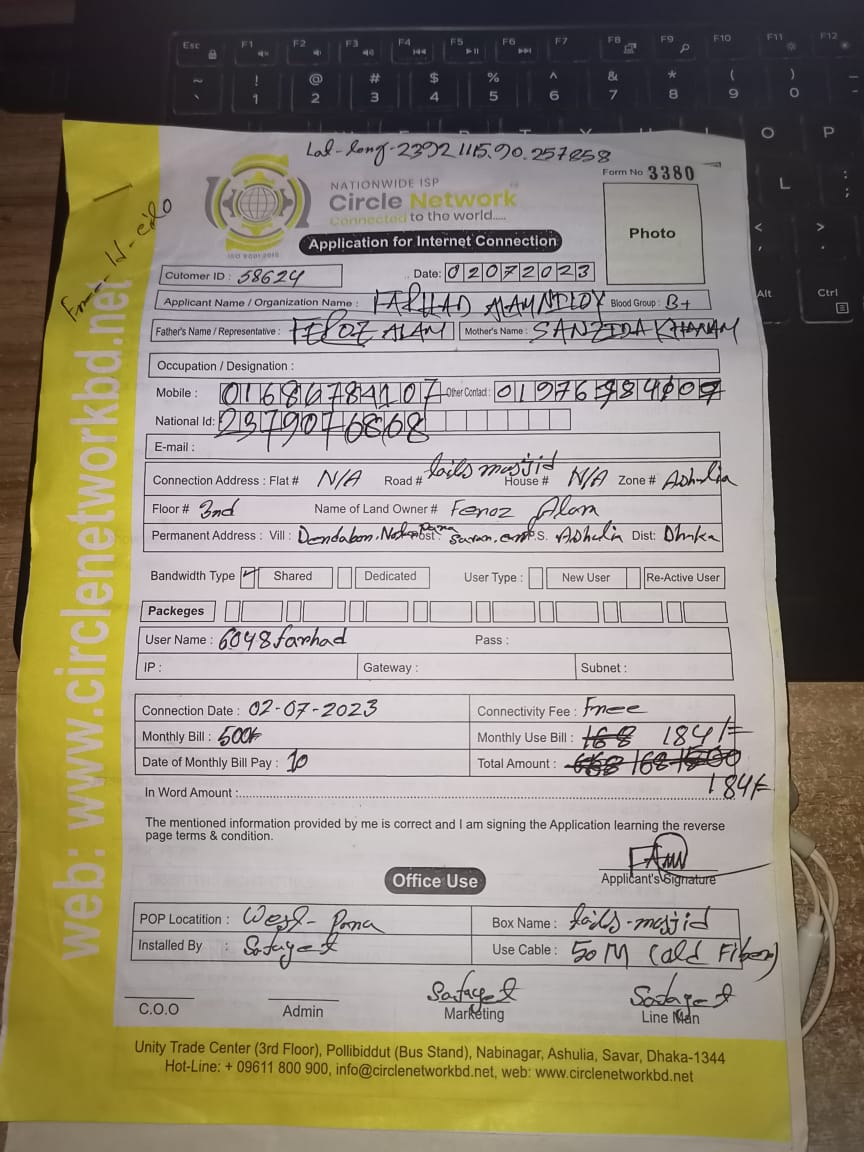 Lat-long-2392 1115.90.257858
Form No 3380
NATIONWIDE ISP
Circle Network
Connected to the world.....
ISO 9001:2015
Photo
Application for Internet Connection
Cutomer ID : 58624 Date: 02072023
Applicant Name / Organization Name : FARHAD ALAM Blood Group : B+
Father's Name / Representative : FEROZ ALAM Mother's Name : SANZIDA KHANAM
Occupation / Designation :
Mobile : 01686784107 Other Contact : 01976
National Id: 2379076868
E-mail :
Connection Address : Flat # N/A Road # masjid House # N/A Zone # Ashulia
Floor # 3nd Name of Land Owner # Feroz Alam
Permanent Address : Vill : Dendabor. Post: Savar. P.S. Ashulia Dist: Dhaka
Bandwidth Type Shared Dedicated User Type : New User Re-Active User
Packeges
User Name : 6048farhad Pass :
IP : Gateway : Subnet :
Connection Date : 02-07-2023 Connectivity Fee : Free
Monthly Bill : 500/- Monthly Use Bill : 168 184/=
Date of Monthly Bill Pay : 10 Total Amount : 668 168 1500
184/=
In Word Amount :
The mentioned information provided by me is correct and I am signing the Application learning the reverse
page terms & condition.
Applicant's Signature
Office Use
POP Locatition : West- Para Box Name : masjid
Installed By : Safayet Use Cable : 50 M (old Fiber)
Safayet Safayet
C.O.O Admin Marketing Line Man
Unity Trade Center (3rd Floor), Pollibiddut (Bus Stand), Nabinagar, Ashulia, Savar, Dhaka-1344
Hot-Line: + 09611 800 900, info@circlenetworkbd.net, web: www.circlenetworkbd.net
web: www.circlenetworkbd.net